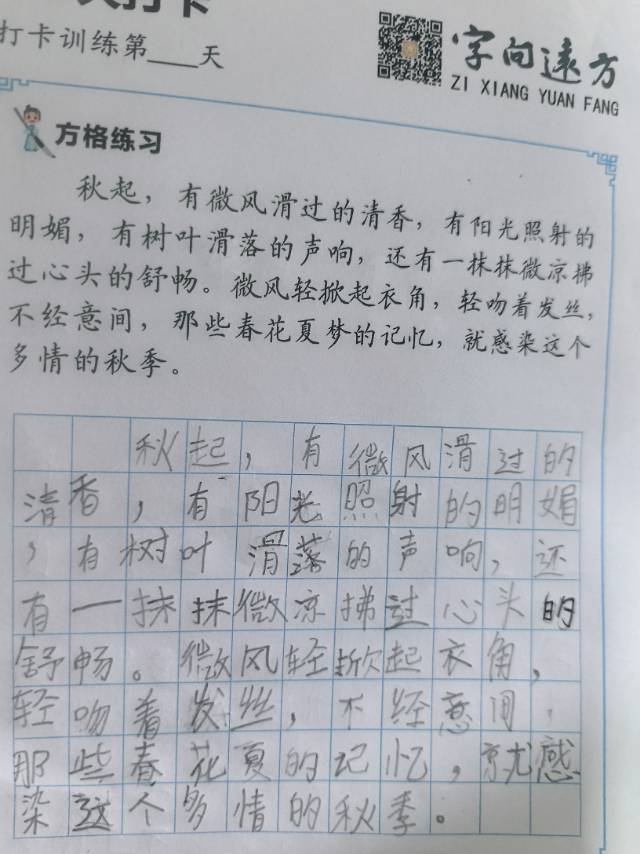 天打卡
打卡训练第____天
字向远方
ZI XIANG YUAN FANG
方格练习
秋起，有微风滑过的清香，有阳光照射的
明媚，有树叶滑落的声响，还有一抹抹微凉拂
过心头的舒畅。微风轻掀起衣角，轻吻着发丝，
不经意间，那些春花夏梦的记忆，就感染这个
多情的秋季。
秋起，有微风滑过的
清香，有阳光照射的明媚
，有树叶滑落的声响，还
有一抹抹微凉拂过心头的
舒畅。微风轻掀起衣角，
轻吻着发丝，不经意间，
那些春花夏的记忆，就感
染这个多情的秋季。